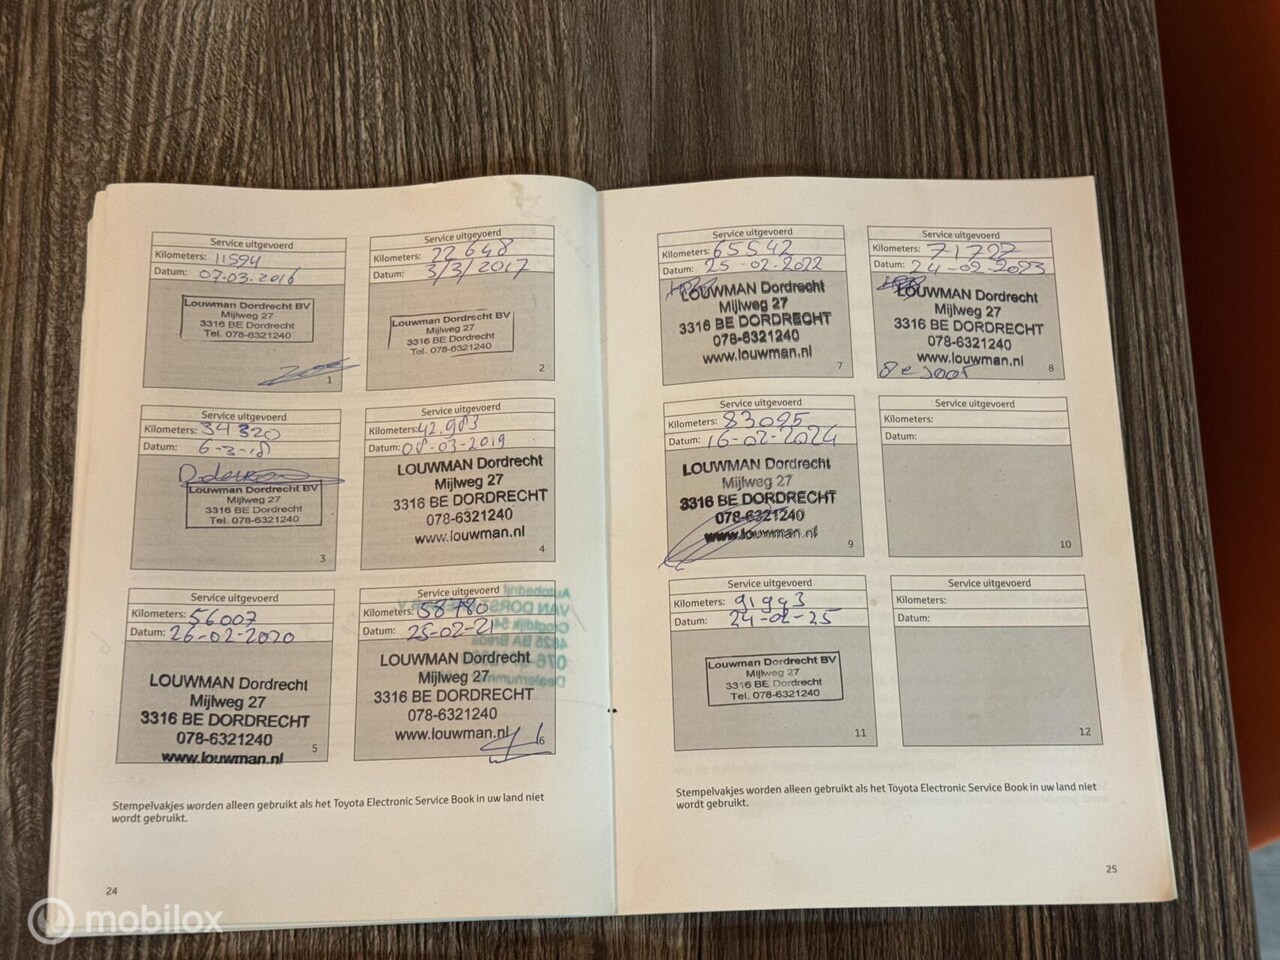 Service uitgevoerd
Kilometers: 11594
Datum: 07.03.2016
Louwman Dordrecht BV
Mijlweg 27
3316 BE Dordrecht
Tel. 078-6321240
1
Service uitgevoerd
Kilometers: 22648
Datum: 3/3/2017
Louwman Dordrecht BV
Mijlweg 27
3316 BE Dordrecht
Tel. 078-6321240
2
Service uitgevoerd
Kilometers: 34320
Datum: 6-3-18
Louwman Dordrecht BV
Mijlweg 27
3316 BE Dordrecht
Tel. 078-6321240
3
Service uitgevoerd
Kilometers: 42.983
Datum: 08-03-2019
LOUWMAN Dordrecht
Mijlweg 27
3316 BE DORDRECHT
078-6321240
www.louwman.nl
4
Service uitgevoerd
Kilometers: 56007
Datum: 26-02-2020
LOUWMAN Dordrecht
Mijlweg 27
3316 BE DORDRECHT
078-6321240
www.louwman.nl
5
Service uitgevoerd
Kilometers: 58780
Datum: 25-02-21
LOUWMAN Dordrecht
Mijlweg 27
3316 BE DORDRECHT
078-6321240
www.louwman.nl
6
Stempelvakjes worden alleen gebruikt als het Toyota Electronic Service Book in uw land niet
wordt gebruikt.
24
Service uitgevoerd
Kilometers: 65542
Datum: 25-02-2022
LOUWMAN Dordrecht
Mijlweg 27
3316 BE DORDRECHT
078-6321240
www.louwman.nl
7
Service uitgevoerd
Kilometers: 71722
Datum: 24-02-2023
LOUWMAN Dordrecht
Mijlweg 27
3316 BE DORDRECHT
078-6321240
www.louwman.nl
8
Service uitgevoerd
Kilometers: 83095
Datum: 16-02-2024
LOUWMAN Dordrecht
Mijlweg 27
3316 BE DORDRECHT
078-6321240
www.louwman.nl
9
Service uitgevoerd
Kilometers:
Datum:
10
Service uitgevoerd
Kilometers: 91993
Datum: 24-02-25
Louwman Dordrecht BV
Mijlweg 27
3316 BE Dordrecht
Tel. 078-6321240
11
Service uitgevoerd
Kilometers:
Datum:
12
Stempelvakjes worden alleen gebruikt als het Toyota Electronic Service Book in uw land niet
wordt gebruikt.
25
mobilox